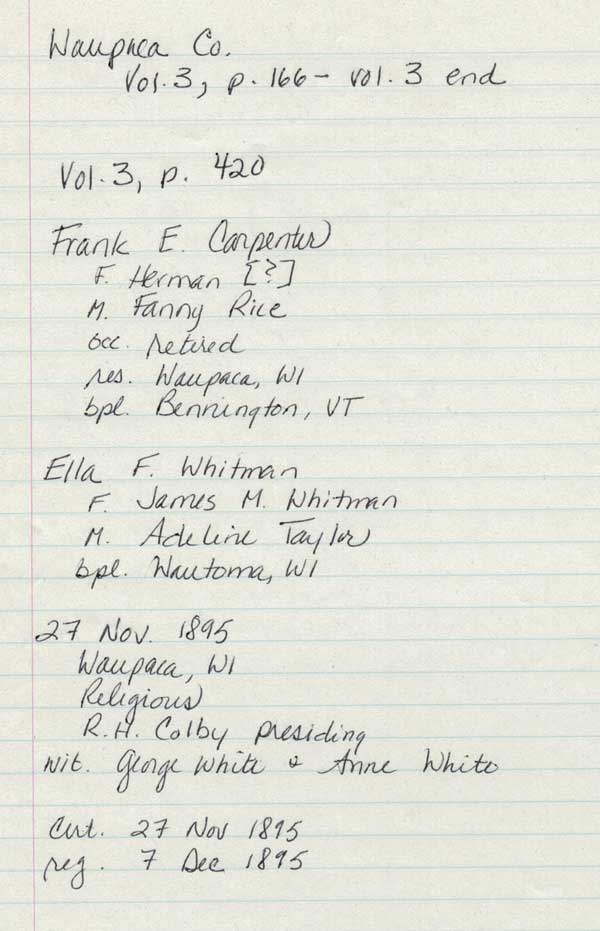 Waupaca Co.
Vol. 3, p. 166 - vol. 3 end
Vol. 3, p. 420
Frank E. Carpenter
F. Herman [?]
M. Fanny Rice
occ. retired
res. Waupaca, WI
bpl. Bennington, VT
Ella F. Whitman
F. James M. Whitman
M. Adeline Taylor
bpl. Wautoma, WI
27 Nov. 1895
Waupaca, WI
Religious
R.H. Colby presiding
wit. George White & Anne White
Cert. 27 Nov 1895
reg. 7 Dec 1895